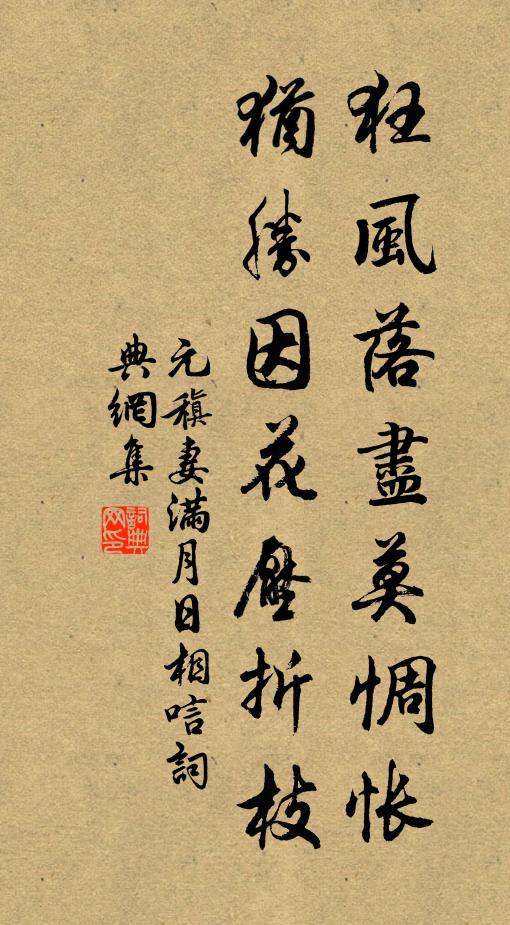 狂風落盡莫惆悵
猶勝因花壓折枝
元稹妻滿月日相唁詞
典網集
詞典網印